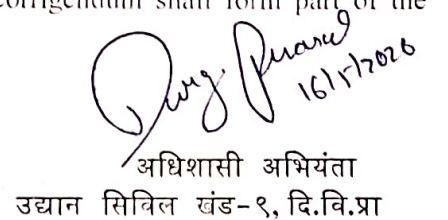 corrigendum shall form part of the
16/5/2020
अधिशासी अभियंता
उद्यान सिविल खंड-९, दि.वि.प्रा